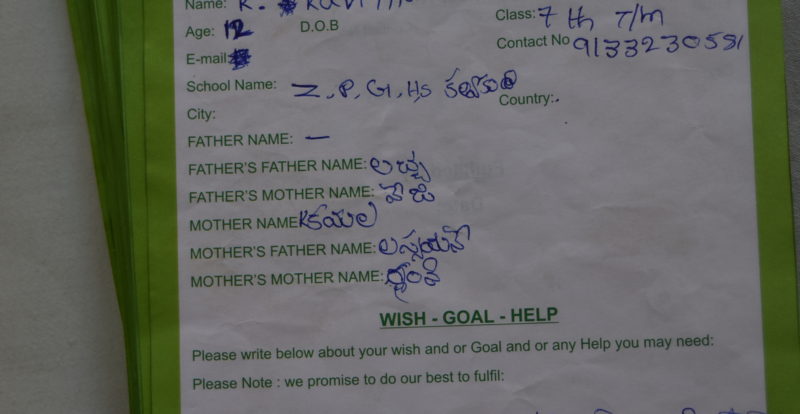 Name: K.
Class: 7 th T/m
Age: 12 D.O.B
Contact No 9133230581
E-mail:
School Name: Z.P.G.Hs
Country:.
City:
FATHER NAME: –
FATHER'S FATHER NAME: లచ్చు
FATHER'S MOTHER NAME:
MOTHER NAME
MOTHER'S FATHER NAME:
MOTHER'S MOTHER NAME:
WISH - GOAL - HELP
Please write below about your wish and or Goal and or any Help you may need:
Please Note : we promise to do our best to fulfil: